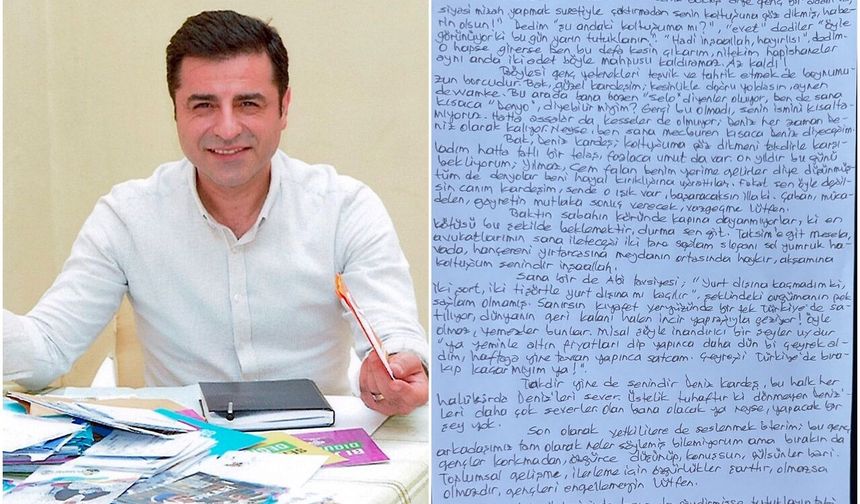 siyasi mizah yapmak suretiyle çaktırmadan senin koltuğuna göz dikmiş, habe-
rin olsun!" Dedim "şu andaki koltuğuma mı?", "evet" dediler "öyle
görünüyor ki bu gün yarın tutuklanır." "Hadi inşaallah, hayırlısı", dedim.
O hapse girerse ben bu defa kesin çıkarım, nitekim hapishaneler
aynı anda iki adet böyle mahpusu kaldıramaz. Az kaldı!
Böylesi genç yetenekleri teşvik ve tahrik etmek de boynumu-
zun borcudur. Bak, güzel kardeşim; kesinlikle doğru yoldasın, aynen
devamke. Bu arada bana bazen "Selo" diyenler oluyor, ben de sana
kısaca "Denyo" diyebilir miyim? Gerçi bu olmadı, senin ismini kısalta-
mıyoruz. Hatta assalar da, kesseler de olmuyor; Deniz her zaman De-
niz olarak kalıyor. Neyse, ben sana mecburen kısaca Deniz diyeceğim.
Bak, Deniz kardeş; koltuğuma göz dikmeni takdirle karşı-
ladım hatta tatlı bir telaş, fazlaca umut da var. On yıldır bu günü
bekliyorum; Yılmaz, Cem falan benim yerime gelirler diye düşünmüş-
tüm de denyolar beni hayal kırıklığına uğrattılar. Fakat sen öyle değil-
sin canım kardeşim, sende o ışık var, başaracaksın illaki. Çaban, müca-
delen, gayretin mutlaka sonuç verecek, vazgeçme lütfen.
Baktın sabahın köründe kapına dayanmıyorlar, ki en
kötüsü bu şekilde beklemektir, durma sen git. Taksim'e git mesela,
avukatlarımın sana ileteceği iki tane sağlam sloganı sol yumruk ha-
vada, hançereni yırtarcasına meydanın ortasında haykır, akşamına
koltuğum senindir inşaallah.
Sana bir de Abi tavsiyesi; "Yurt dışına kaçmadım ki,
iki şort, iki tişörtle yurt dışına mı kaçılır", şeklindeki argümanın pek
sağlam olmamış. Sanırsın kıyafet yeryüzünde bir tek Türkiye'de sa-
tılıyor, dünyanın geri kalanı halen incir yaprağıyla geziyor! Öyle
olmaz, yemezler bunları. Misal şöyle inandırıcı bir şeyler uydur
"ya yeminle altın fiyatları dip yapınca daha dün bi çeyrek al-
dım, haftaya yine tavan yapınca satcam. Çeyreği Türkiye'de bıra-
kıp kaçar mıyım ya!".
Takdir yine de senindir Deniz kardeş, bu halk her
halükârda Deniz'leri sever. Üstelik tuhaftır ki dönmeyen Deniz'-
leri daha çok severler. Olan bana olacak ya neyse, yapacak bir
şey yok.
Son olarak yetkililere de seslenmek isterim; bu genç
arkadaşımız tam olarak neler söylemiş bilemiyorum ama bırakın da
gençler korkmadan, özgürce düşünüp, konuşsun, gülsünler bari.
Toplumsal gelişme, ilerleme için özgürlükler şarttır, olmazsa
olmazdır, gençleri engellemeyin lütfen.